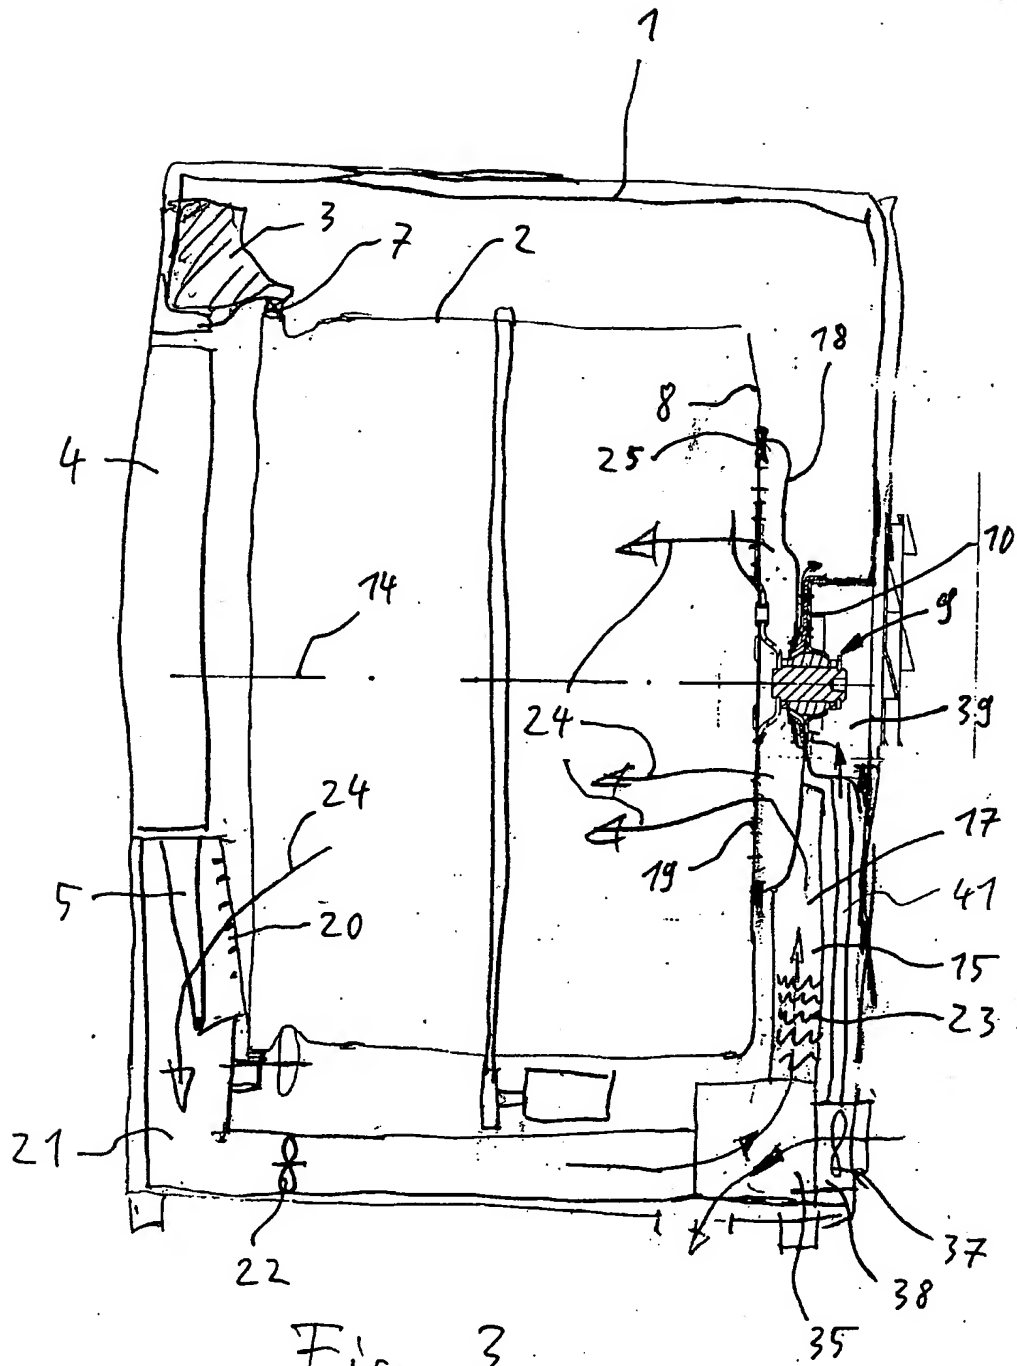 1
3
7
2
18
8
25
4
10
14
9
24
39
24
17
5
19
41
20
15
23
21
37
22
38
35
Fig. 3